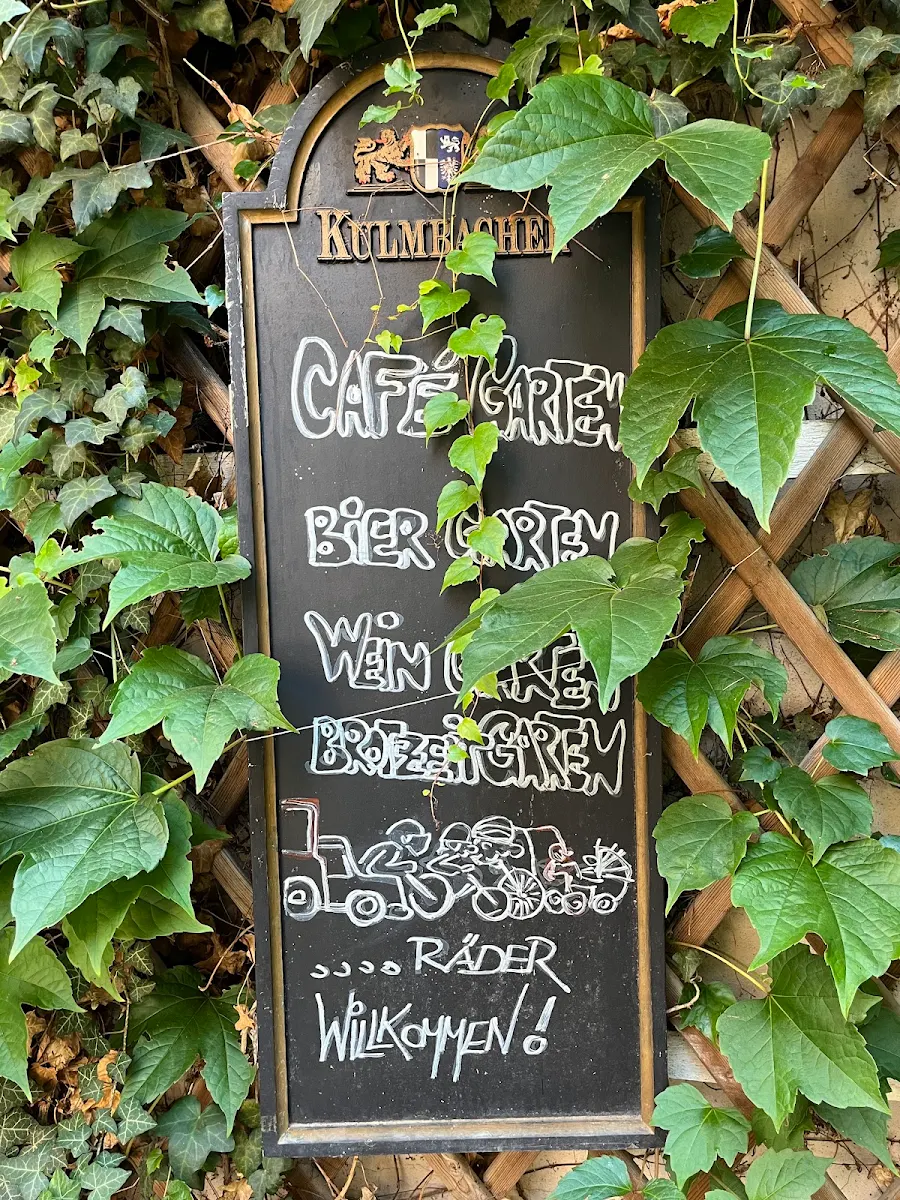 KULMBACHER
CAFÉ GARTEN
BIER GARTEN
WEIN GARTEN
BROTZEITGARTEN
.... RÄDER
WILLKOMMEN!